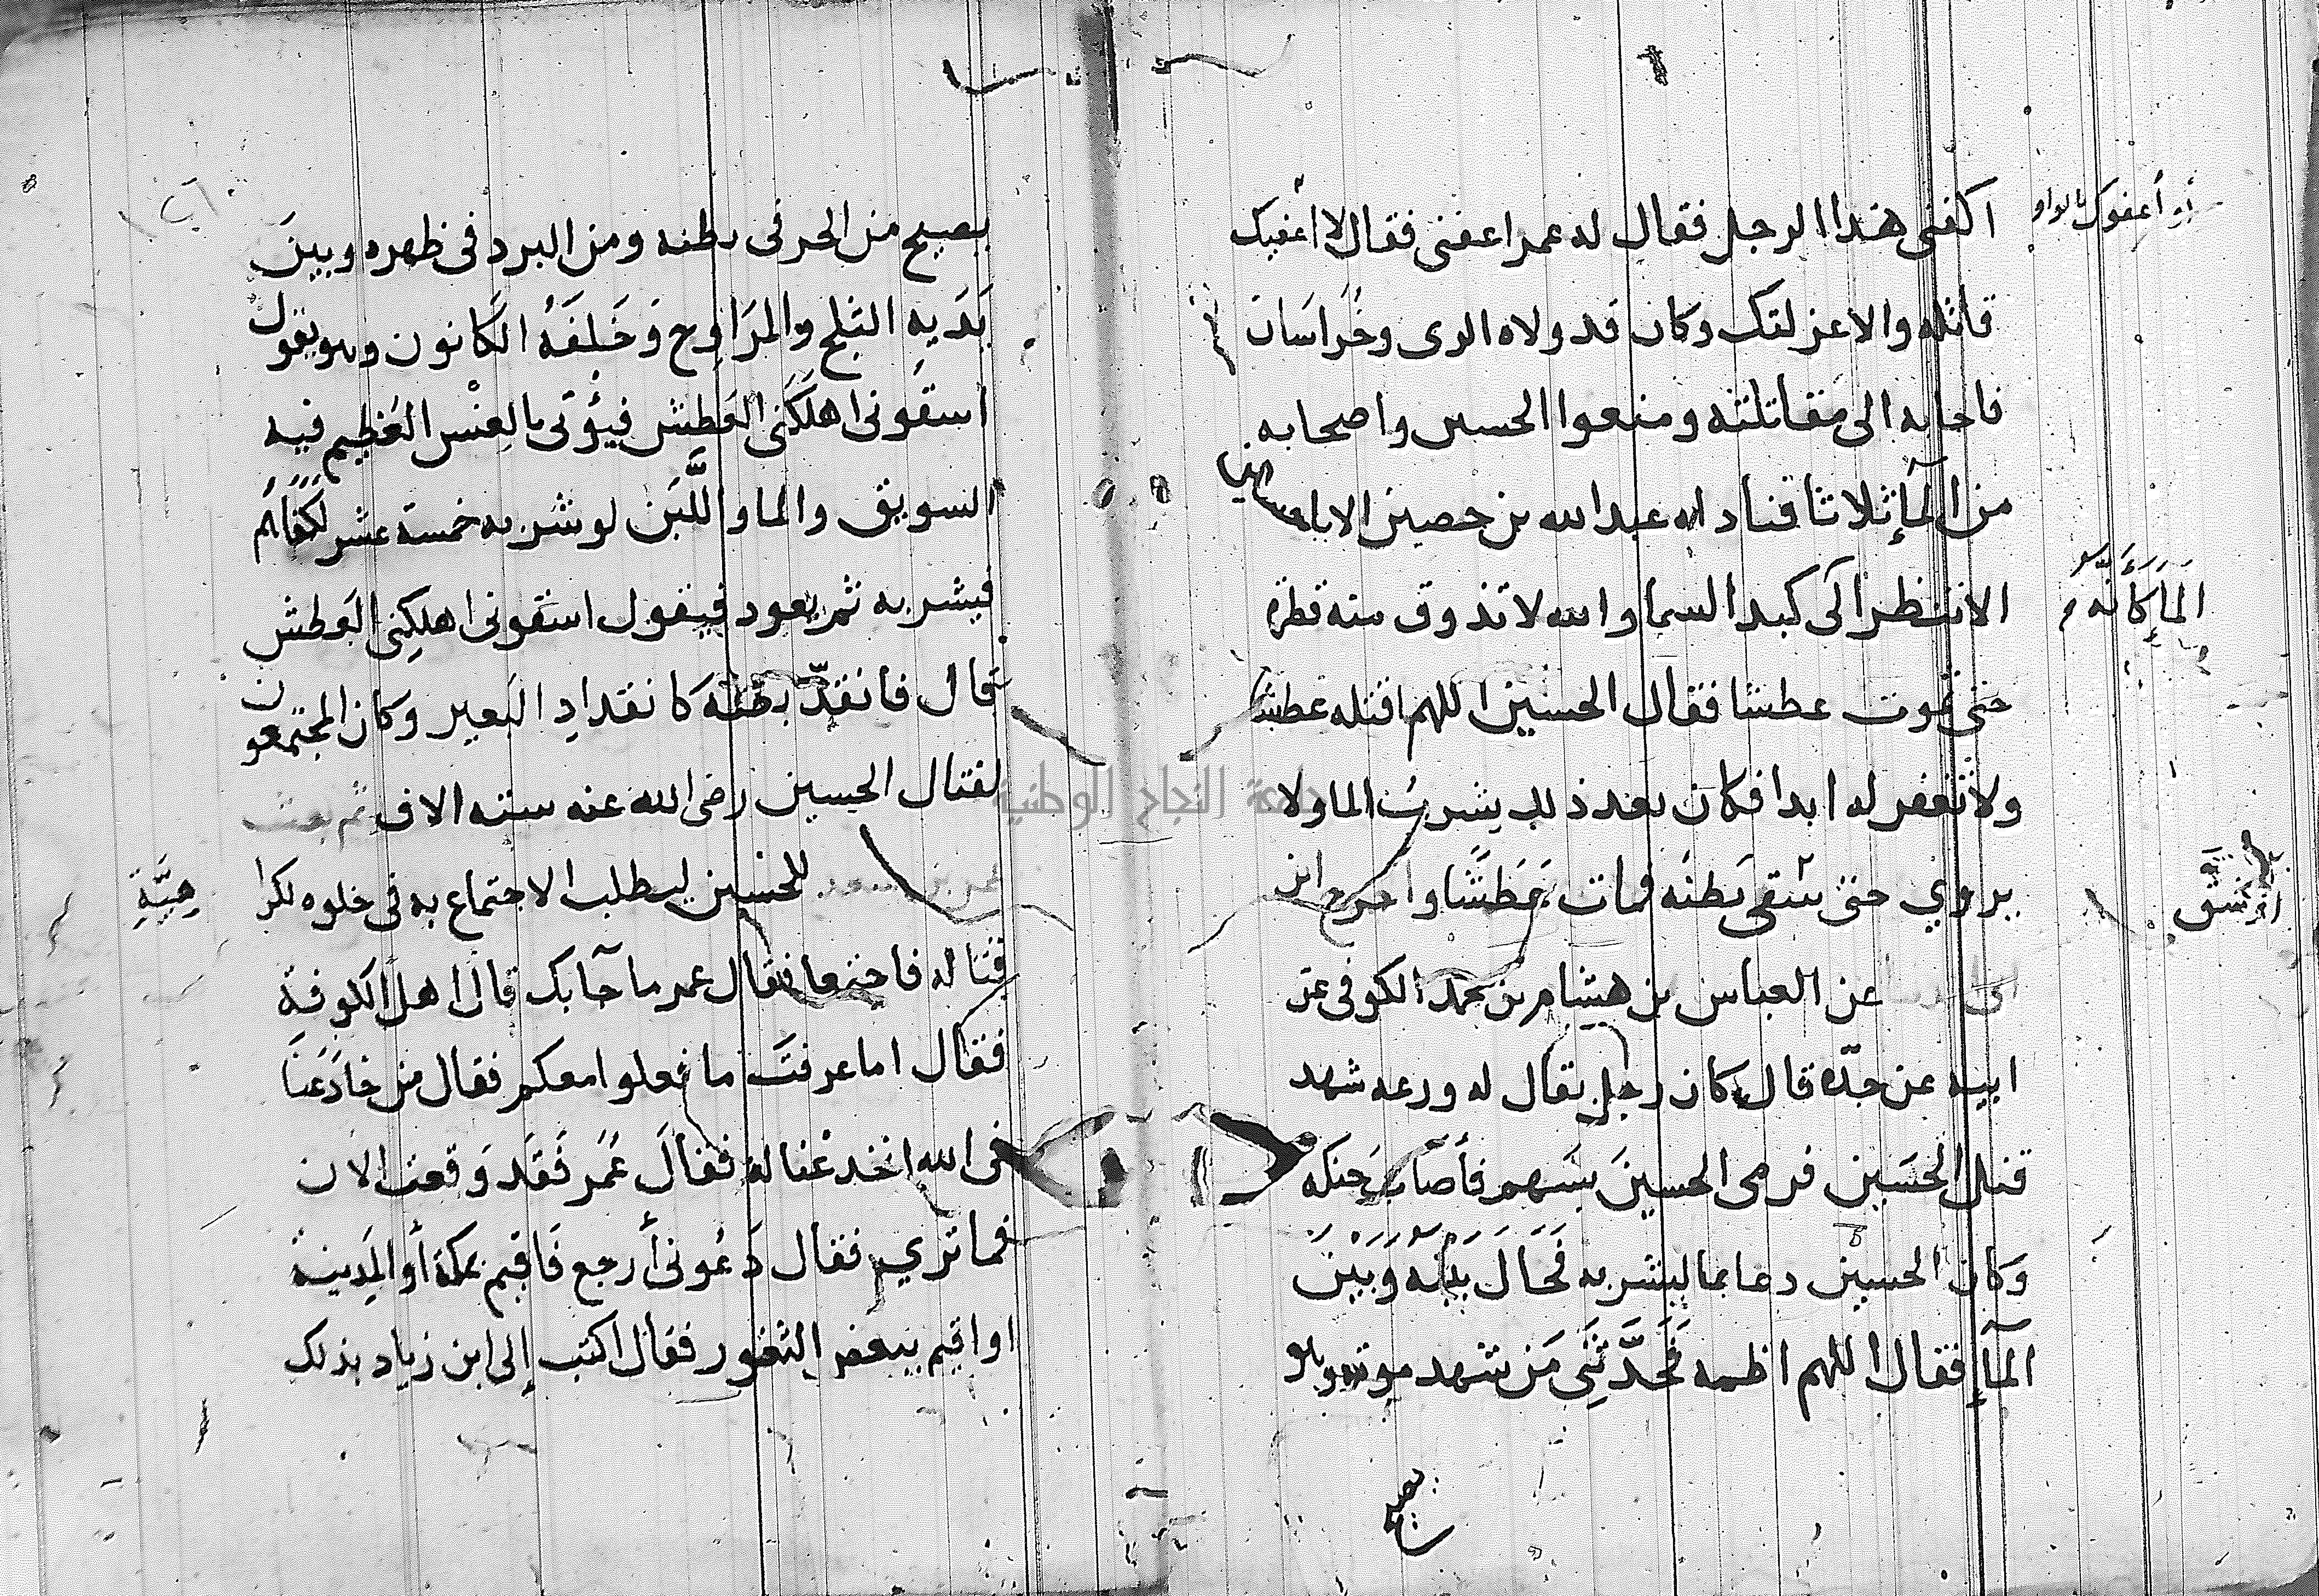 اكفنى هذا الرجل فقال له عمر اعفنى فقال لا أعفيك
قاتله والا عزلتك وكان قد ولاه الرى وخُراسَان
فاجابه الى مقاتلته ومنعوا الحسين واصحابه
من المآء ثلاثا فناداه عبد الله بن حصين
الا تنظر الى كبد السما والله لا تذوق منه قطرة
حتى تموت عطشا فقال الحسين اللهم اقتله عطشا
ولا تغفر له ابدا فكان بعد ذلك يشرب الما ولا
يروي حتى سقى بَطنُه فمات عَطَشًا واخرج ابن
عن العباس بن هشام بن محمد الكوفى عن
ابيه عن جدّه قال كان رجل يقال له ورعه شهد
قتل الحسَين فرمى الحسينَ بسَهم فأصابَ حَنكه
وكان الحسين دعا بما ليشربه فَحَالَ بَيْنَهُ وَبَيْنَ
المآءِ فقال اللهم اظمه فَحَدَّثَنِى مَن شهد موته وهو
يصيح
يصيح من الحر فى بطنه ومن البرد فى ظهره وبينَ
يَدَيهِ الثلج والمرَاوِح وَخَلفَهُ الكَانون وهو يقول
اسقونى اهلكَنى العَطش فيُؤتى بالعِسّ العَظيم فيه
السويق والما واللَّبَن لو شربه خمسة عشر لكفَاهُم
فيشربه ثم يعود فيقول اسقونى اهلكنى العَطش
قال فانقدّ بطنه كانقدادِ البَعير وكان المجتمعون
لقتال الحسين رضى الله عنه ستة الاف ثم بعث
عمر بن سعد للحسين ليطلب الاجتماع به فى خلوه لكرا هيَّةِ
قتاله فاجتمعا فقال عمر ما جآ بك قال اهل الكوفة
فقال اما عرفتَ ما فعلوا معكم فقال من خادَعَنَا
فى الله انخدعْنا له فقالَ عُمَر فَقَد وَقعت الان
فما تري فقال دَعُونى أرجع فَاقيم بمكة أو المَدِينة
او اقيم ببعض الثغور فقال اكتب إلى ابن زياد بذلك